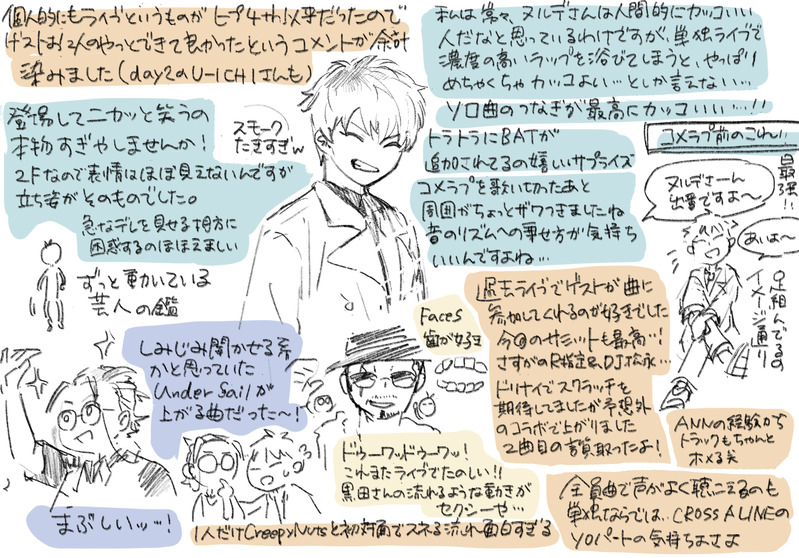 個人的にもライブというものがヒプ4th以来だったので
ゲストお2人のやっとできて良かったというコメントが余計
染みました(day2のU-ICHIさんも)
私は常々ヌルデさんは人間的にカッコいい
人だなと思っているわけですが、単独ライブで
濃度の高いラップを浴びてしまうと、やっぱり
めちゃくちゃカッコよい…としか言えない…
ソロ曲のつなぎが最高にカッコいい…!!
登場してニカッと笑うの
本物すぎやしませんか!
2Fなので表情はほぼ見えないんですが
立ち姿がそのものでした。
急なデレを見せる相方に
困惑するのほほえましい
スモーク
たきすぎw
トラトラにBATが
追加されてるの嬉しいサプライズ
コメラップを歌い切ったあと
周囲がちょっとザワつきましたね
音のリズムへの乗せ方が気持ち
いいんですよね…
コメラプ前のこれいい
最強!!
ヌルデさーん
出番ですよ〜
あいよ〜
足組んでるの
イメージ通り
ずっと動いている
芸人の鑑
過去ライブでゲストが曲に
参加してくれるのが好きでした
今回のサミットも最高!
さすがのR指定&DJ松永…
ドリナイでスクラッチを
期待しましたが予想外
のコラボで上がりました
2曲目の言質取ったよ!
Faces
歯が好き
しみじみ聞かせる系
かと思っていた
Under Sailが
上がる曲だった〜!
まぶしいッッ…!
ドゥーワッドゥーワッ!
これまたライブでたのしい!!
黒田さんの流れるような動きが
セクシーや…
1人だけCreepyNutsと初対面でスネる流れ面白すぎる
ANNの経験から
トラックもちゃんと
ホメる笑
全員曲で声がよく聴こえるのも
単独ならでは、CROSS A LINEの
YOパートの気持ちよさよ